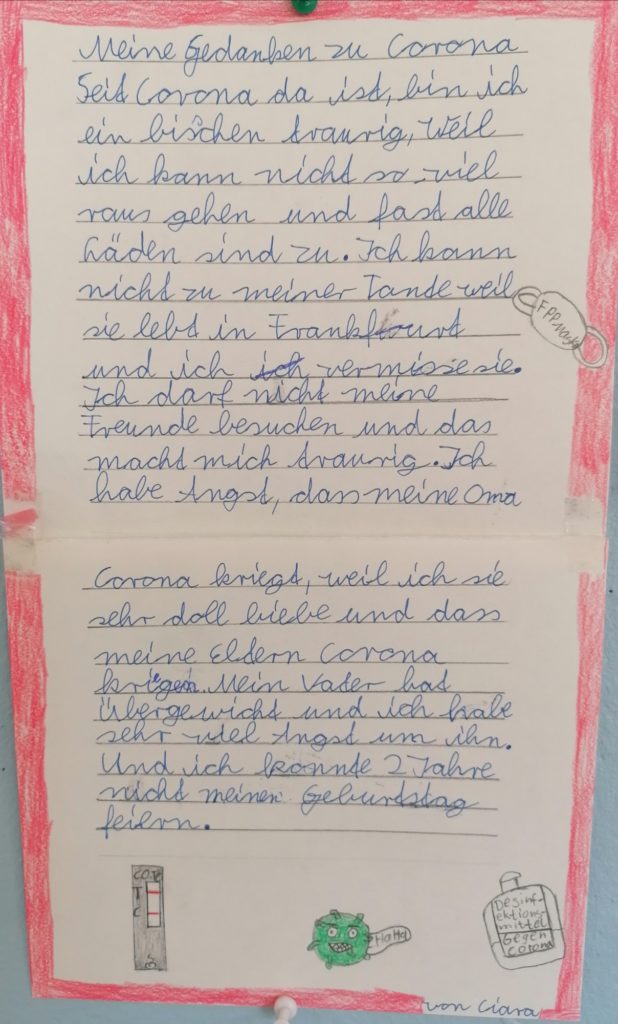 Meine Gedanken zu Corona
Seit Corona da ist, bin ich
ein bischen traurig, Weil
ich kann nicht so viel
raus gehen und fast alle
Läden sind zu. Ich kann
nicht zu meiner Tande weil
sie lebt in Frankfurt
und ich ich vermisse sie.
Ich darf nicht meine
Freunde besuchen und das
macht mich traurig. Ich
habe Angst, dass meine Oma
FPP Mask
Corona kriegt, weil ich sie
sehr doll liebe und dass
meine Eldern Corona
kriegen. Mein Vater hat
Übergewicht und ich habe
sehr viel Angst um ihn.
Und ich konnte 2 Jahre
nicht meinen Geburtstag
feiern.
T
C
HaHa
Desinf-
ektions-
mittel
Gegen
Corona
von Ciara